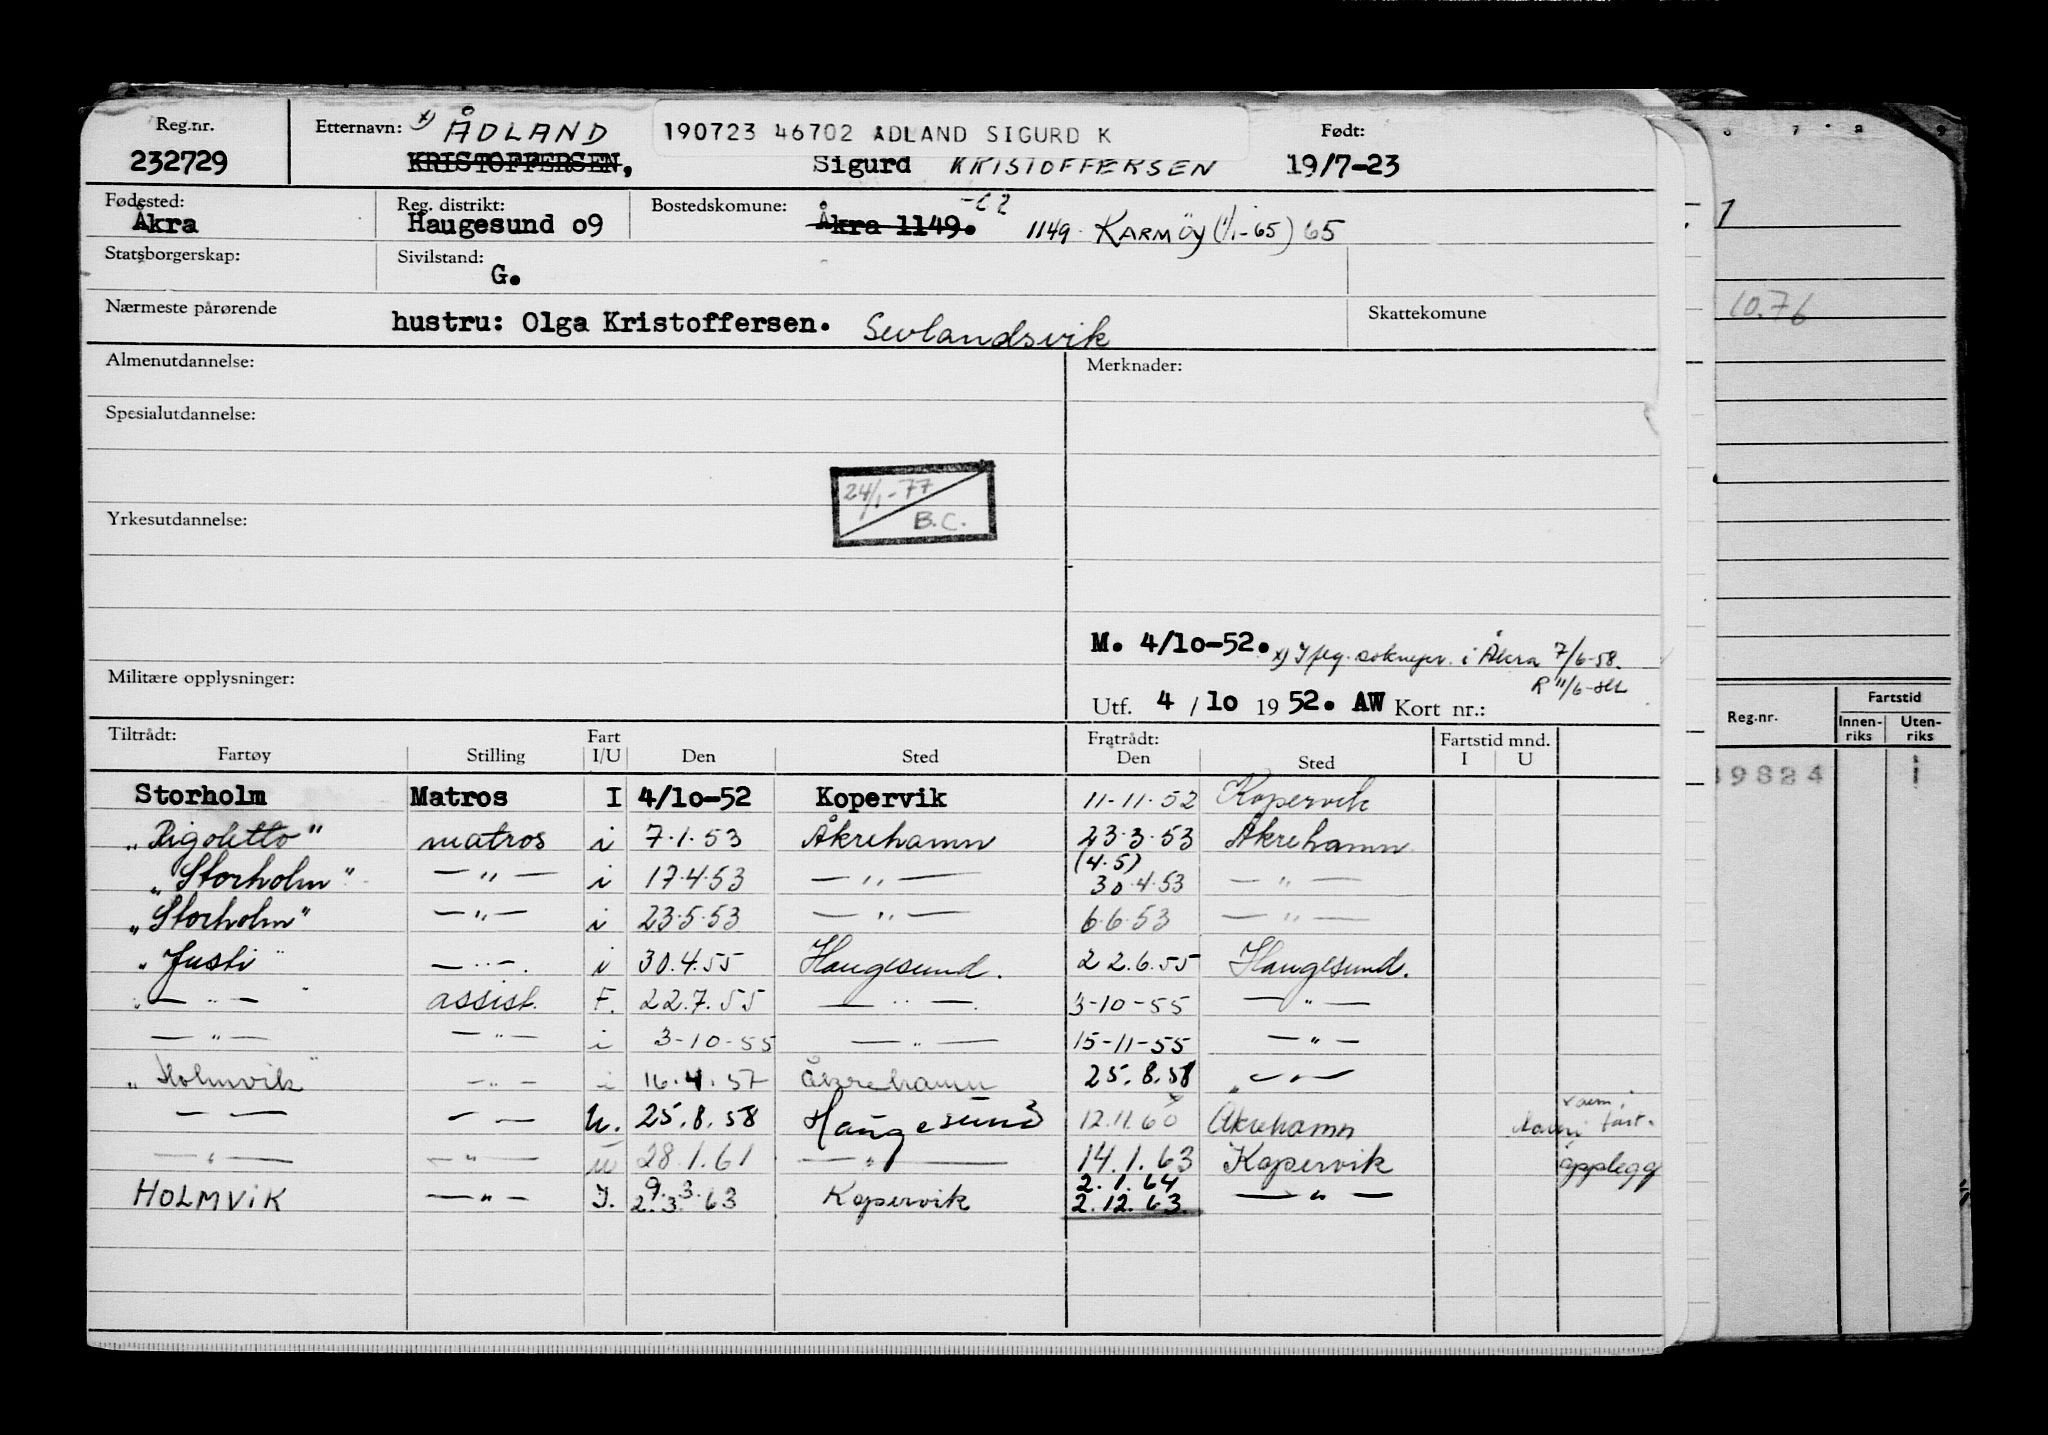 Reg.nr. Etternavn: x) ÅDLAND 190723 46702 ADLAND SIGURD K Født:
232729 KRISTOFFERSEN, Sigurd KRISTOFFERSEN 19/7-23
Fødested: Reg. distrikt: Bostedskomune:
Åkra Haugesund o9 Åkra 1149. 1149 KARMÖY (1/1-65) 65
Statsborgerskap: Sivilstand:
G.
Nærmeste pårørende Skattekomune
hustru: Olga Kristoffersen. Sevlandsvik
Almenutdannelse: Merknader:
Spesialutdannelse:
24/1-77
B.C.
Yrkesutdannelse:
M. 4/1o-52. x) Iflg. i Åkra 7/6-58.
Militære opplysninger:
R 11/6-
Utf. 4 / 1o 19 52. AW Kort nr.:
Tiltrådt: Fart Fratrådt: Fartstid mnd.
Fartøy Stilling I/U Den Sted Den Sted I U
Storholm Matros I 4/1o-52 Kopervik 11-11-52 Kopervik
„Rigoletto" matros i 7.1.53 Åkrehamn 23.3.53 Åkrehamn
(4.5)
„Storholm" — „ — i 17.4.53 — „ — 30.4.53 — „ —
„Storholm" — „ — i 23.5.53 — „ — 6.6.53 — „ —
„Justi" — „ — i 30.4.55 Haugesund. 22.6.55 Haugesund.
„— „ —" assist. F. 22.7.55 — „ — 3-10-55 — „ —
— „ — — „ — i 3-10-55 — „ — 15-11-55 — „ —
„Holmvik" — „ — i 16.4.57 Åkrehamn 25.8.58 — „ —
— „ — — „ — U. 25.8.58 Haugesund 12.11.60 Åkrehamn
— „ — — „ — u 28.1.61 — „ — 14.1.63 Kopervik opplegg
9.3. 2.1.64
HOLMVIK — „ — I. 2.3.63 Kopervik 2.12.63 — „ —
10.76
Reg.nr. Fartstid
Innen-riks Uten-riks
9824 1